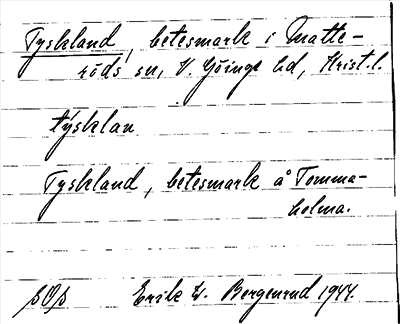 Tyskland, betesmark i Matte-
röds sn, V. Göinge hd, Krist. l.
týsklan
Tyskland, betesmark å Tomma-
holma.
Erik W. Bergenrud 1944.